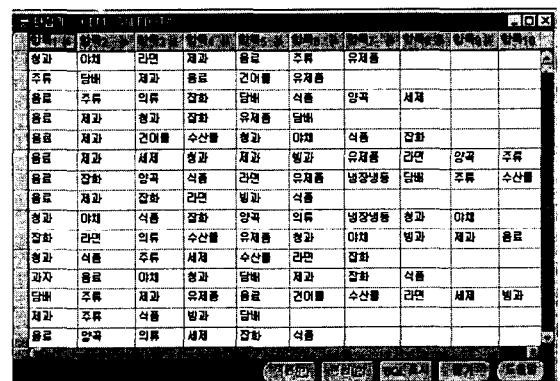 항목1 항목2 항목3 항목4 항목5 항목6 항목7 항목8 항목9 항목10
청과 야채 라면 제과 음료 주류 유제품
주류 담배 제과 음료 건어물 유제품
음료 주류 의류 잡화 담배 식품 양곡 세제
음료 제과 청과 잡화 유제품 담배
음료 제과 건어물 수산물 청과 야채 식품 잡화
음료 제과 세제 청과 제과 빙과 유제품 라면 양곡 주류
음료 잡화 양곡 식품 라면 유제품 냉장냉동 담배 주류 수산물
음료 제과 잡화 라면 빙과 식품
청과 야채 식품 잡화 양곡 의류 냉장냉동 청과 야채
잡화 라면 의류 수산물 유제품 청과 야채 빙과 제과 음료
청과 식품 주류 세제 수산물 라면 잡화
과자 음료 야채 청과 담배 제과 잡화 식품
담배 주류 제과 유제품 음료 건어물 수산물 라면 세제 빙과
제과 주류 식품 빙과 담배
음료 양곡 의류 세제 잡화 식품